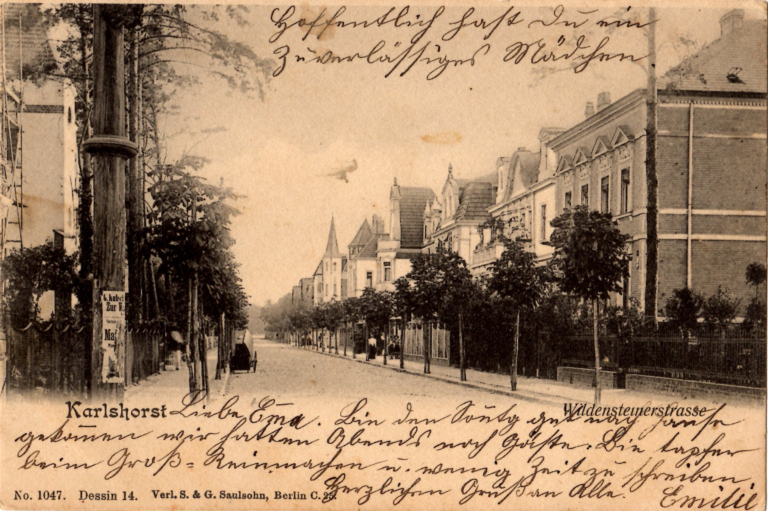 Hoffentlich hast Du ein
zuverlässiges Mädchen
Zur
Karlshorst
Wildensteinerstrasse
Liebe Ema. Bin den Sontg gut nach Hause
gekomen wir hatten Abends noch Gäste. Bin tapfer
beim Groß-Reinmachen u. wenig Zeit zu schreiben.
Herzlichen Gruß an Alle. Emilie
No. 1047. Dessin 14. Verl. S. & G. Saulsohn, Berlin C. 25.